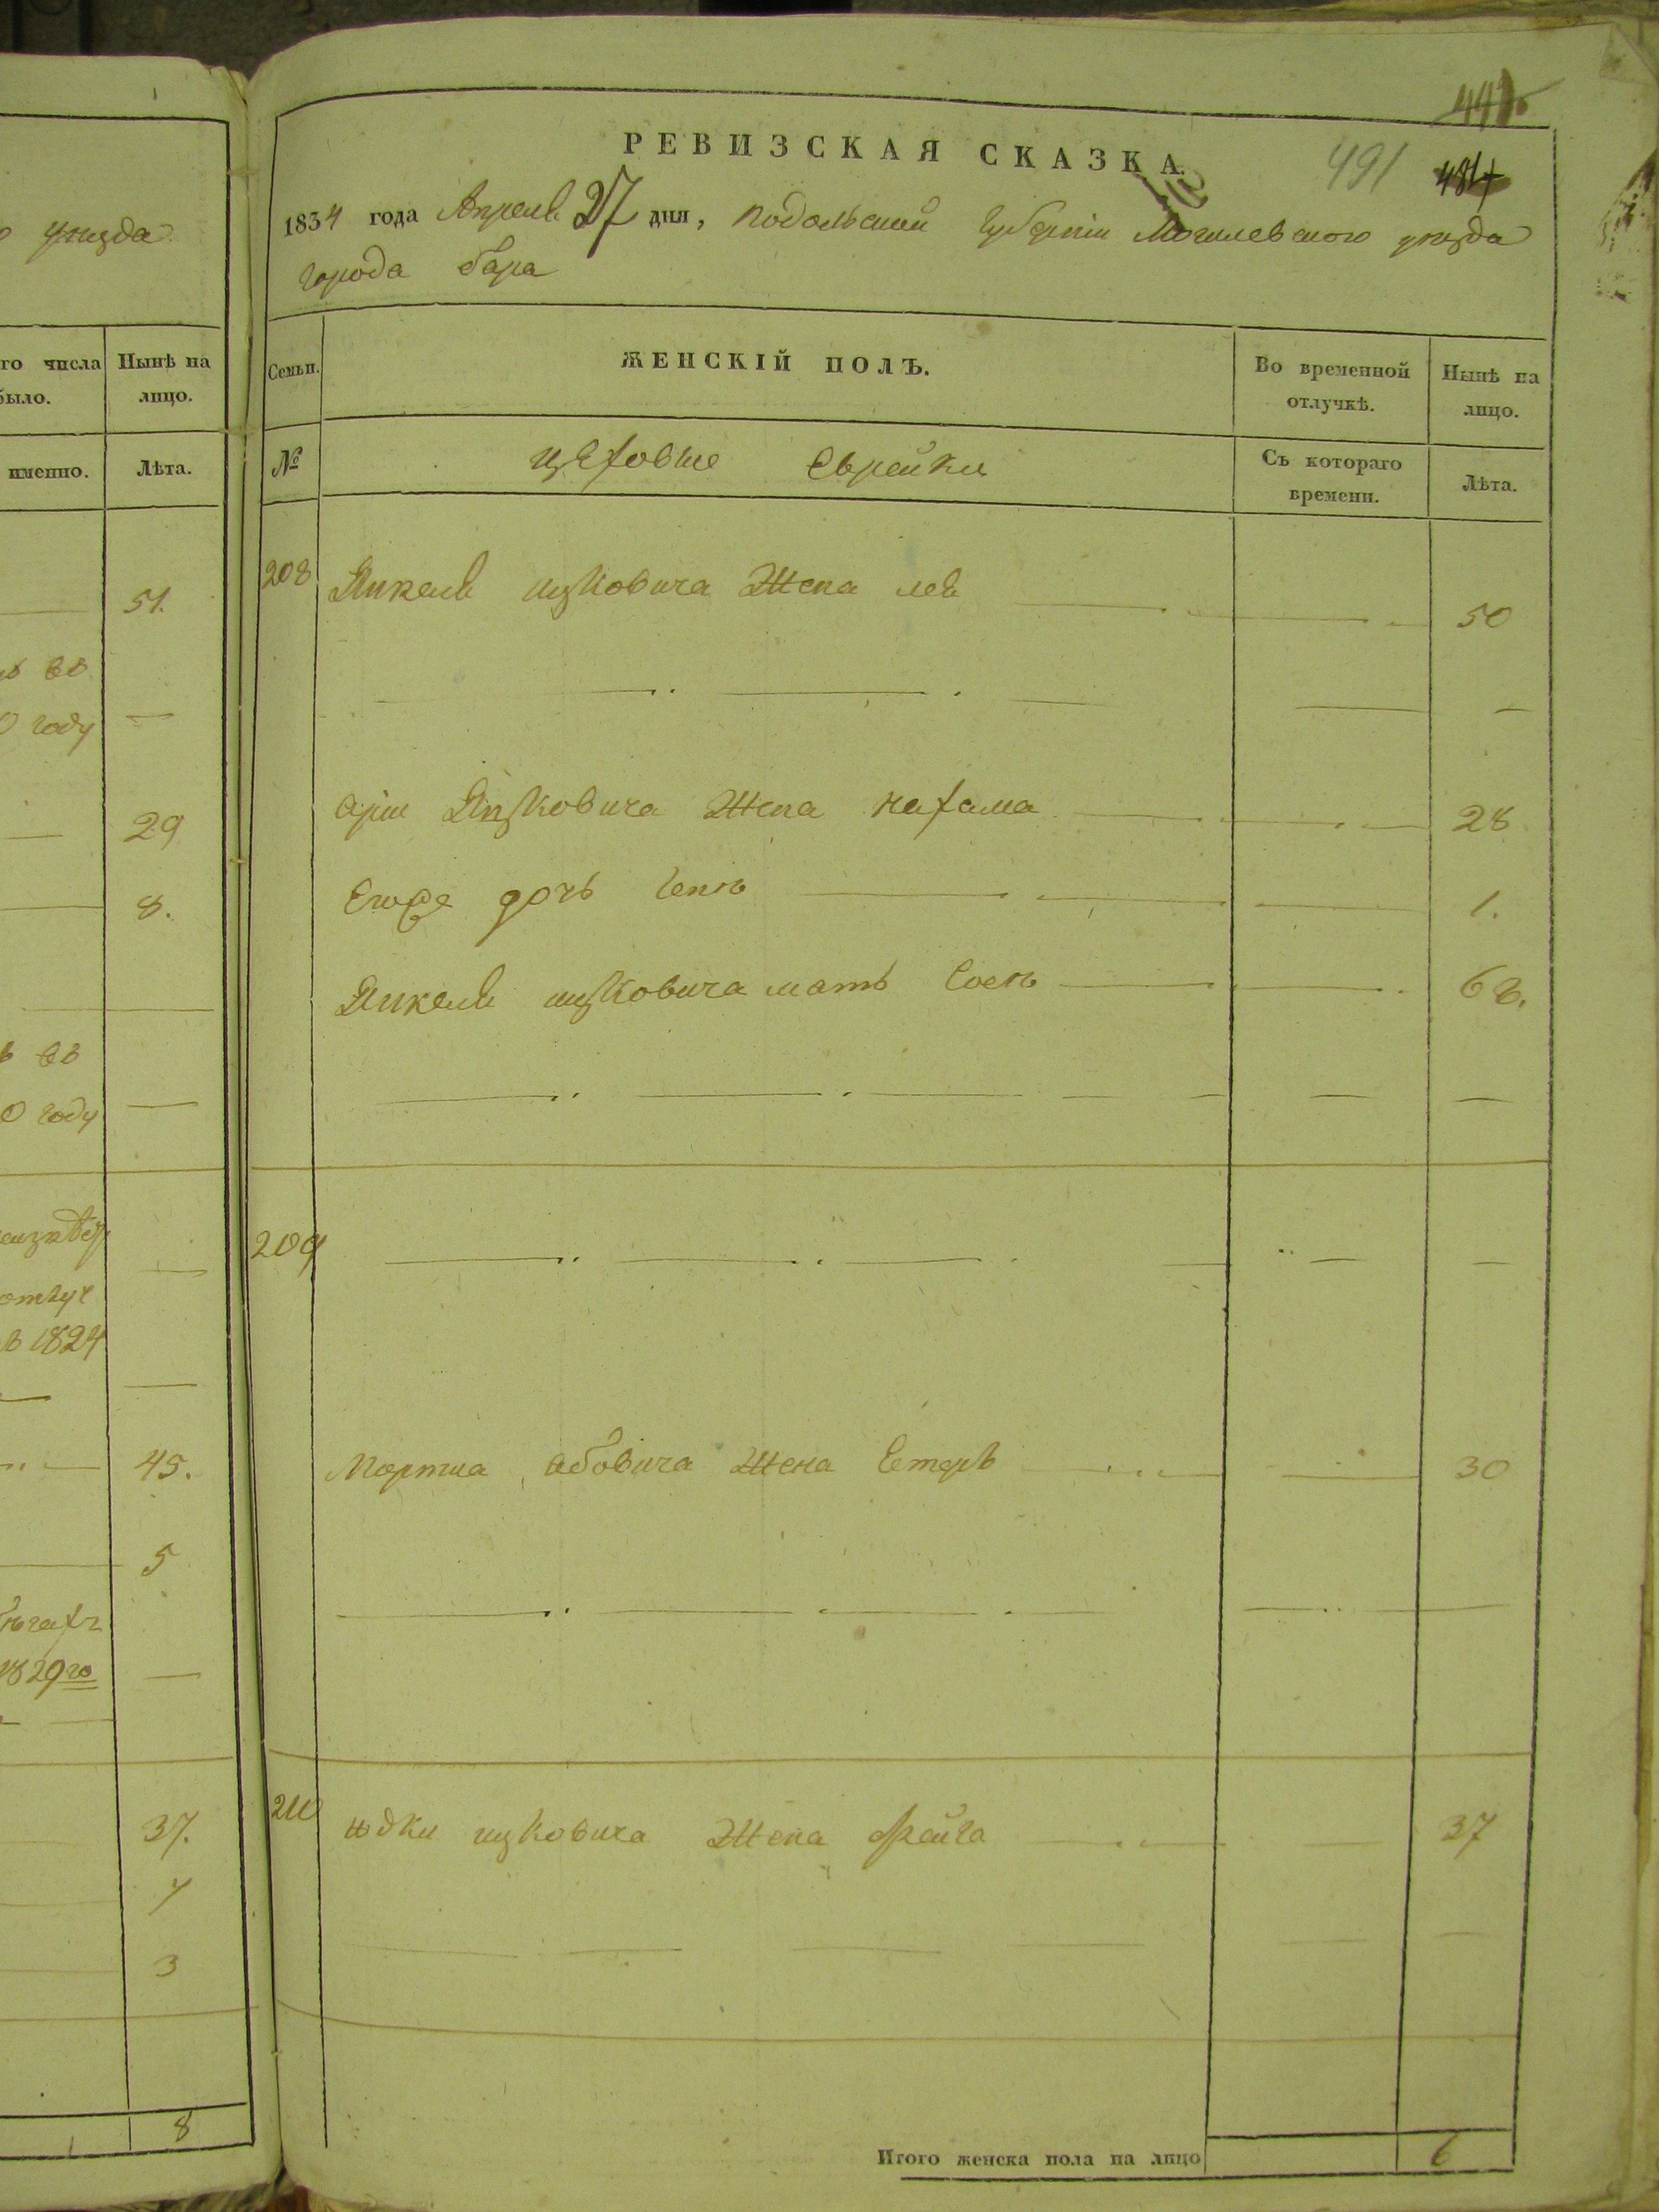 уѣзда
го числа
Нынѣ на
было.
лицо.
именно.
Лѣта.
51.
во
0 году
29
8.
въ
0 году
в 1824
45.
5
1829го
37.
7
3
8
РЕВИЗСКАЯ СКАЗКА.
491
1834 года Апреля 27 дня, подольской Губерніи Могилевского уѣзда
города бара
Семьи.
ЖЕНСКІЙ ПОЛЪ.
Во временной
отлучкѣ.
Нынѣ на
лицо.
№
цеховые Еврейки
Съ котораго
времени.
Лѣта.
208 Янкеля ицковича жена лея 50
Арш Янковича жена нехама 28
Его дочь Геня 1.
Янкеля ицковича мать 68.
209
Мортка абовича жена Естеръ 30
210 юдки ицковича жена Фейга 37
Итого женска пола на лицо 6